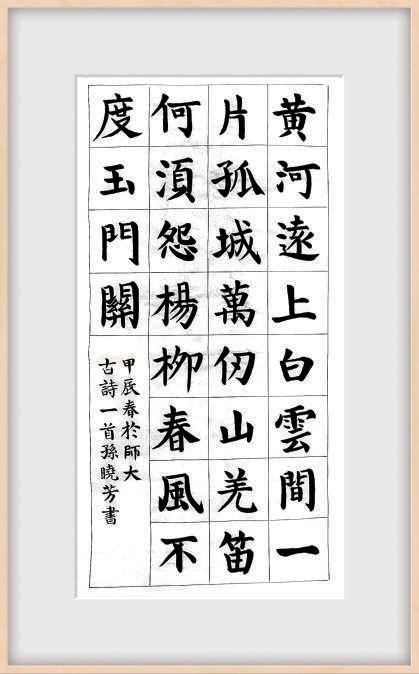 黄河遠上白雲間一
片孤城萬仞山羌笛
何須怨楊柳春風不
度玉門關
甲辰春於師大
古詩一首孫曉芳書